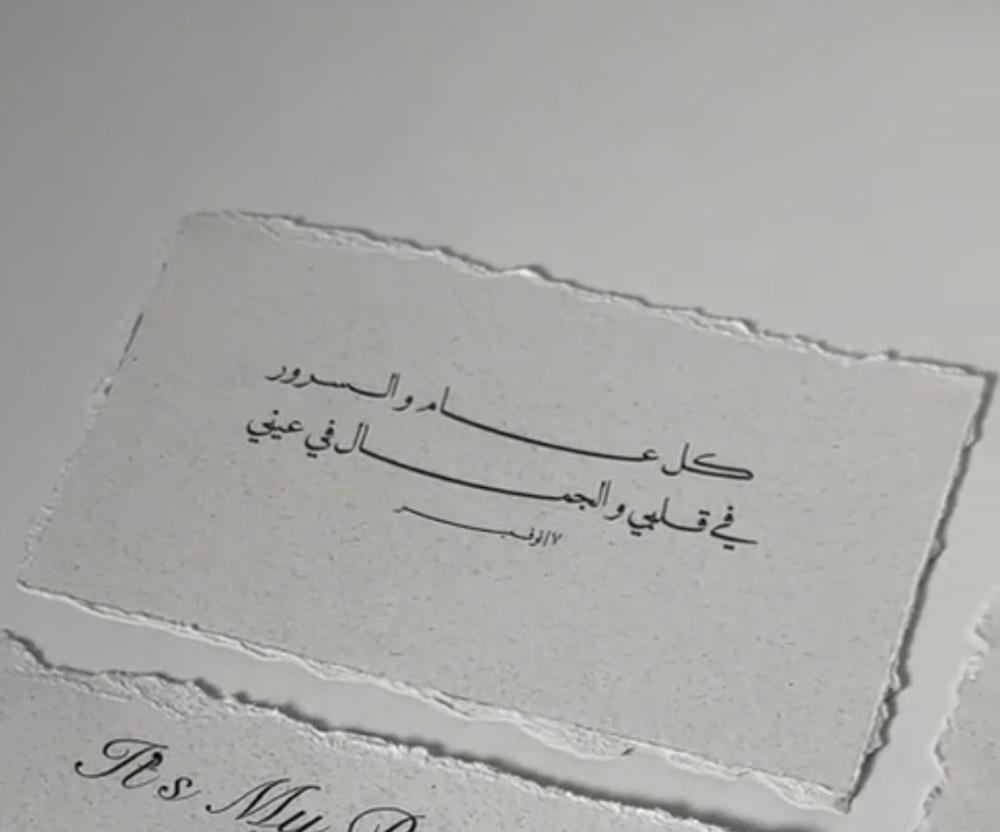 كل عـــام و السرور
في قلبي و الجمـــال في عيني
٧/نوفمبـــر
It's My